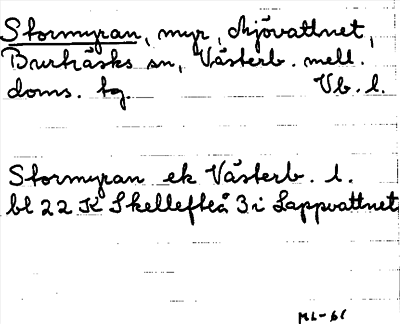 Stormyran, myr, Mjövattnet,
Burträsks sn, Västerb. mell.
doms. tg. Vb. l.
Stormyran ek Västerb. l.
bl 22 K Skellefteå 3 i Lappvattnet